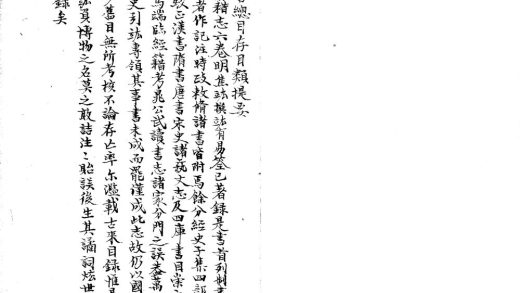 總目存目類提要
籍志六卷明焦竑撰竑有易筌已著錄是書首列制書
者作記注時政敕脩諸書皆附焉餘分經史子集四部
正漢書隋書唐書宋史諸藝文志及四庫書目崇
馬端臨經籍考晁公武讀書志諸家分門之誤蓋萬
史引竑專領其事書未成而罷僅成此志故仍以國
舊目無所考核不論存亡率尔濫載古來目錄惟是
負博物之名莫之敢詰往〻貽誤後生其譎詞炫世
錄矣